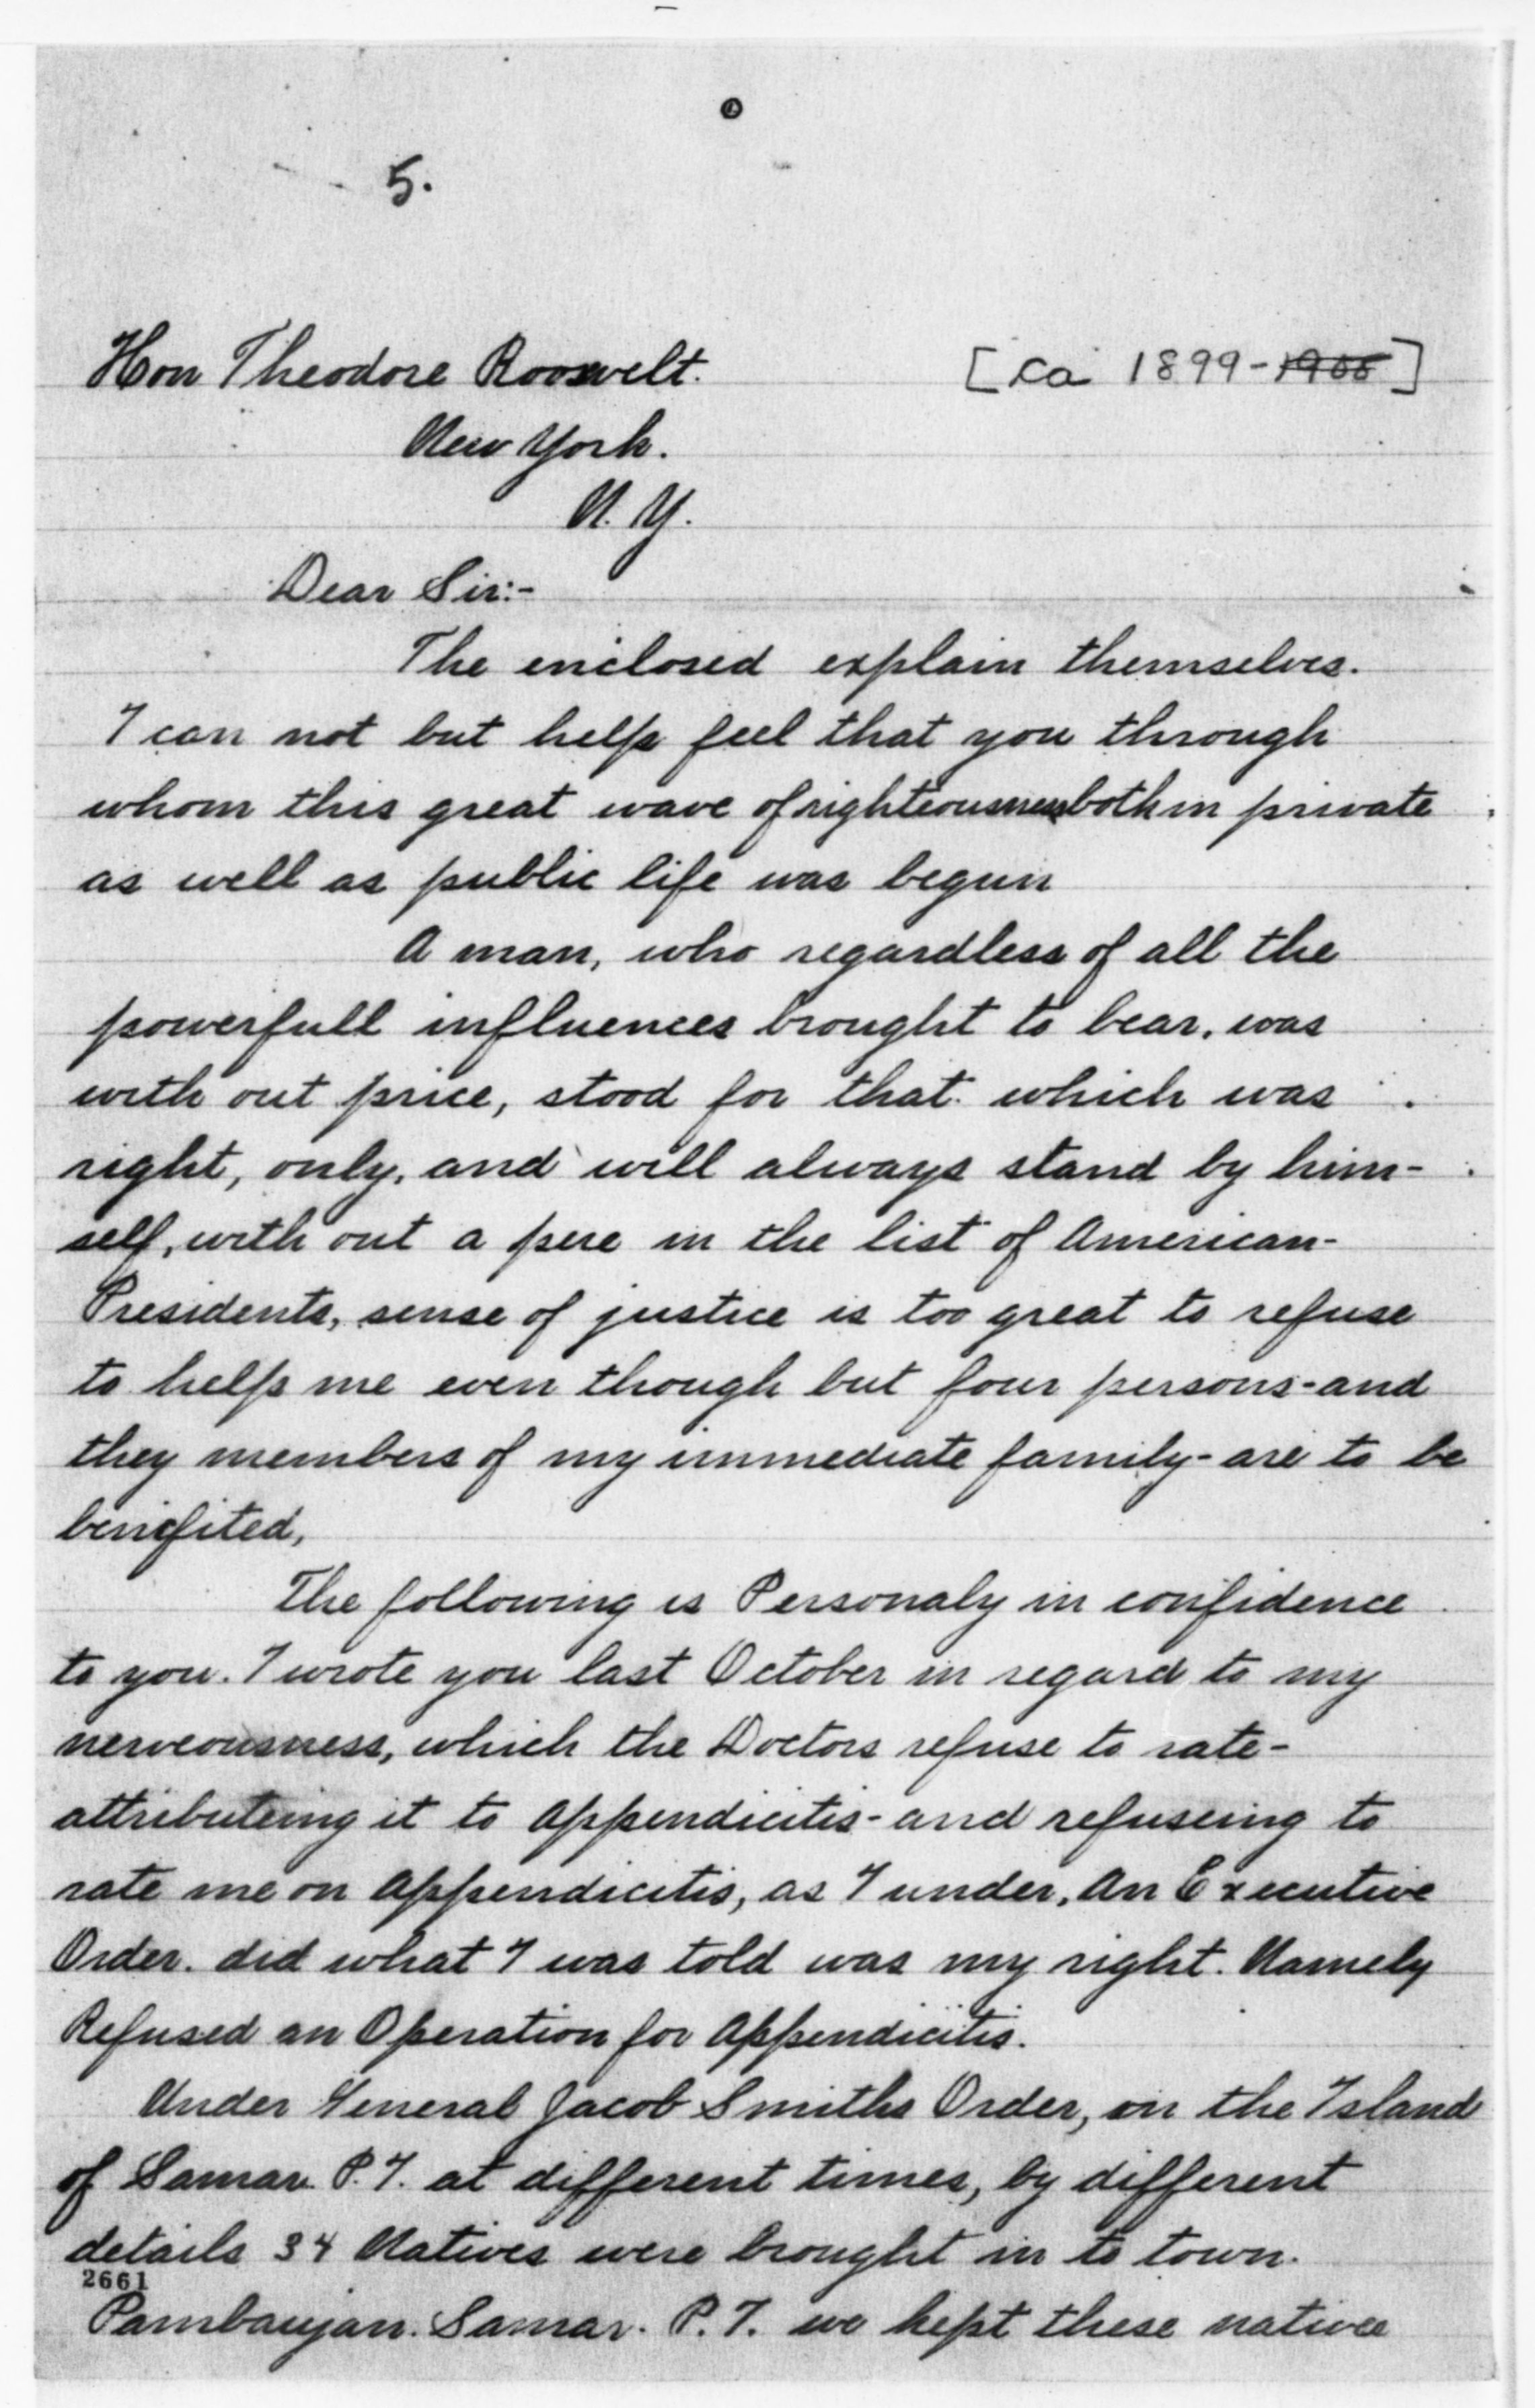 5.
Hon Theodore Roosvelt.
[ca 1899-1908]
New York.
N. Y.
Dear Sir:-
The enclosed explain themselves.
I can not but help feel that you through
whom this great wave of righteousness both in private
as well as public life was begun
A man, who regardless of all the
powerfull influences brought to bear, was
with out price, stood for that which was
right, only, and will always stand by him-
self, with out a pere in the list of American-
Presidents, sense of justice is too great to refuse
to help me even though but four persons-and
they members of my immediate family-are to be
benifited,
The following is Personaly in confidence
to you. I wrote you last October in regard to my
nerveousness, which the Doctors refuse to rate-
attributeing it to Appendicitis-and refuseing to
rate me on Appendicitis, as I under, An Executive
Order. did what I was told was my right. Namely
Refused an Operation for Appendicitis.
Under General Jacob Smiths Order, on the Island
of Samar P.I. at different times, by different
details 34 Natives were brought in to town.
2661
Pambaujan. Samar. P.I. we kept these natives